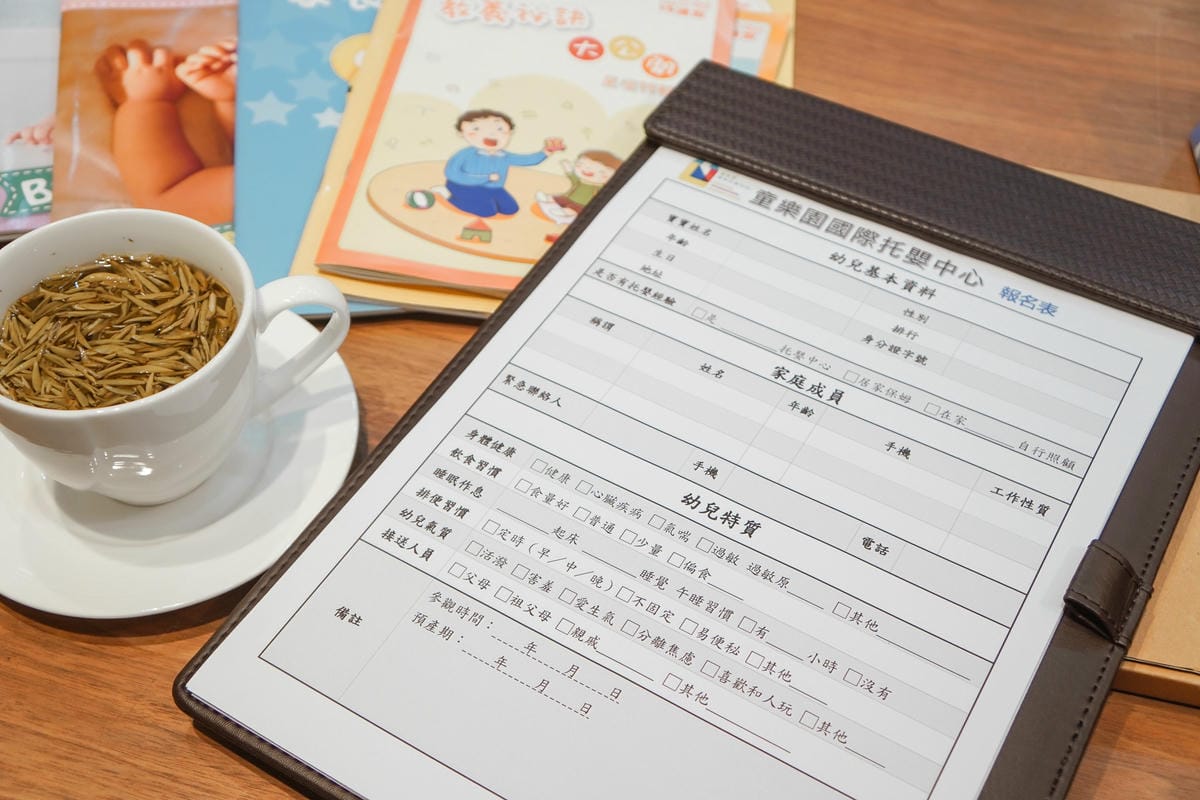 教養祕訣
大公開
B
童樂園國際托嬰中心 報名表
幼兒基本資料
寶寶姓名 性別
年齡 排行
生日 身分證字號
地址
是否有托嬰經驗 □是______托嬰中心 □居家保姆 □在家______自行照顧
家庭成員
稱謂 姓名 年齡 手機 工作性質
緊急聯絡人 手機 電話
幼兒特質
身體健康 □健康 □心臟疾病 □氣喘 □過敏 過敏原______ □其他______
飲食習慣 □食量好 □普通 □少量 □偏食______
睡眠作息 ______起床 ______睡覺 午睡習慣 □有______小時 □沒有
排便習慣 □定時(早/中/晚) □不固定 □易便秘 □其他______
幼兒氣質 □活潑 □害羞 □愛生氣 □分離焦慮 □喜歡和人玩 □其他______
接送人員 □父母 □祖父母 □親戚______ □其他______
備註
參觀時間：____年____月____日
預產期：____年____月____日